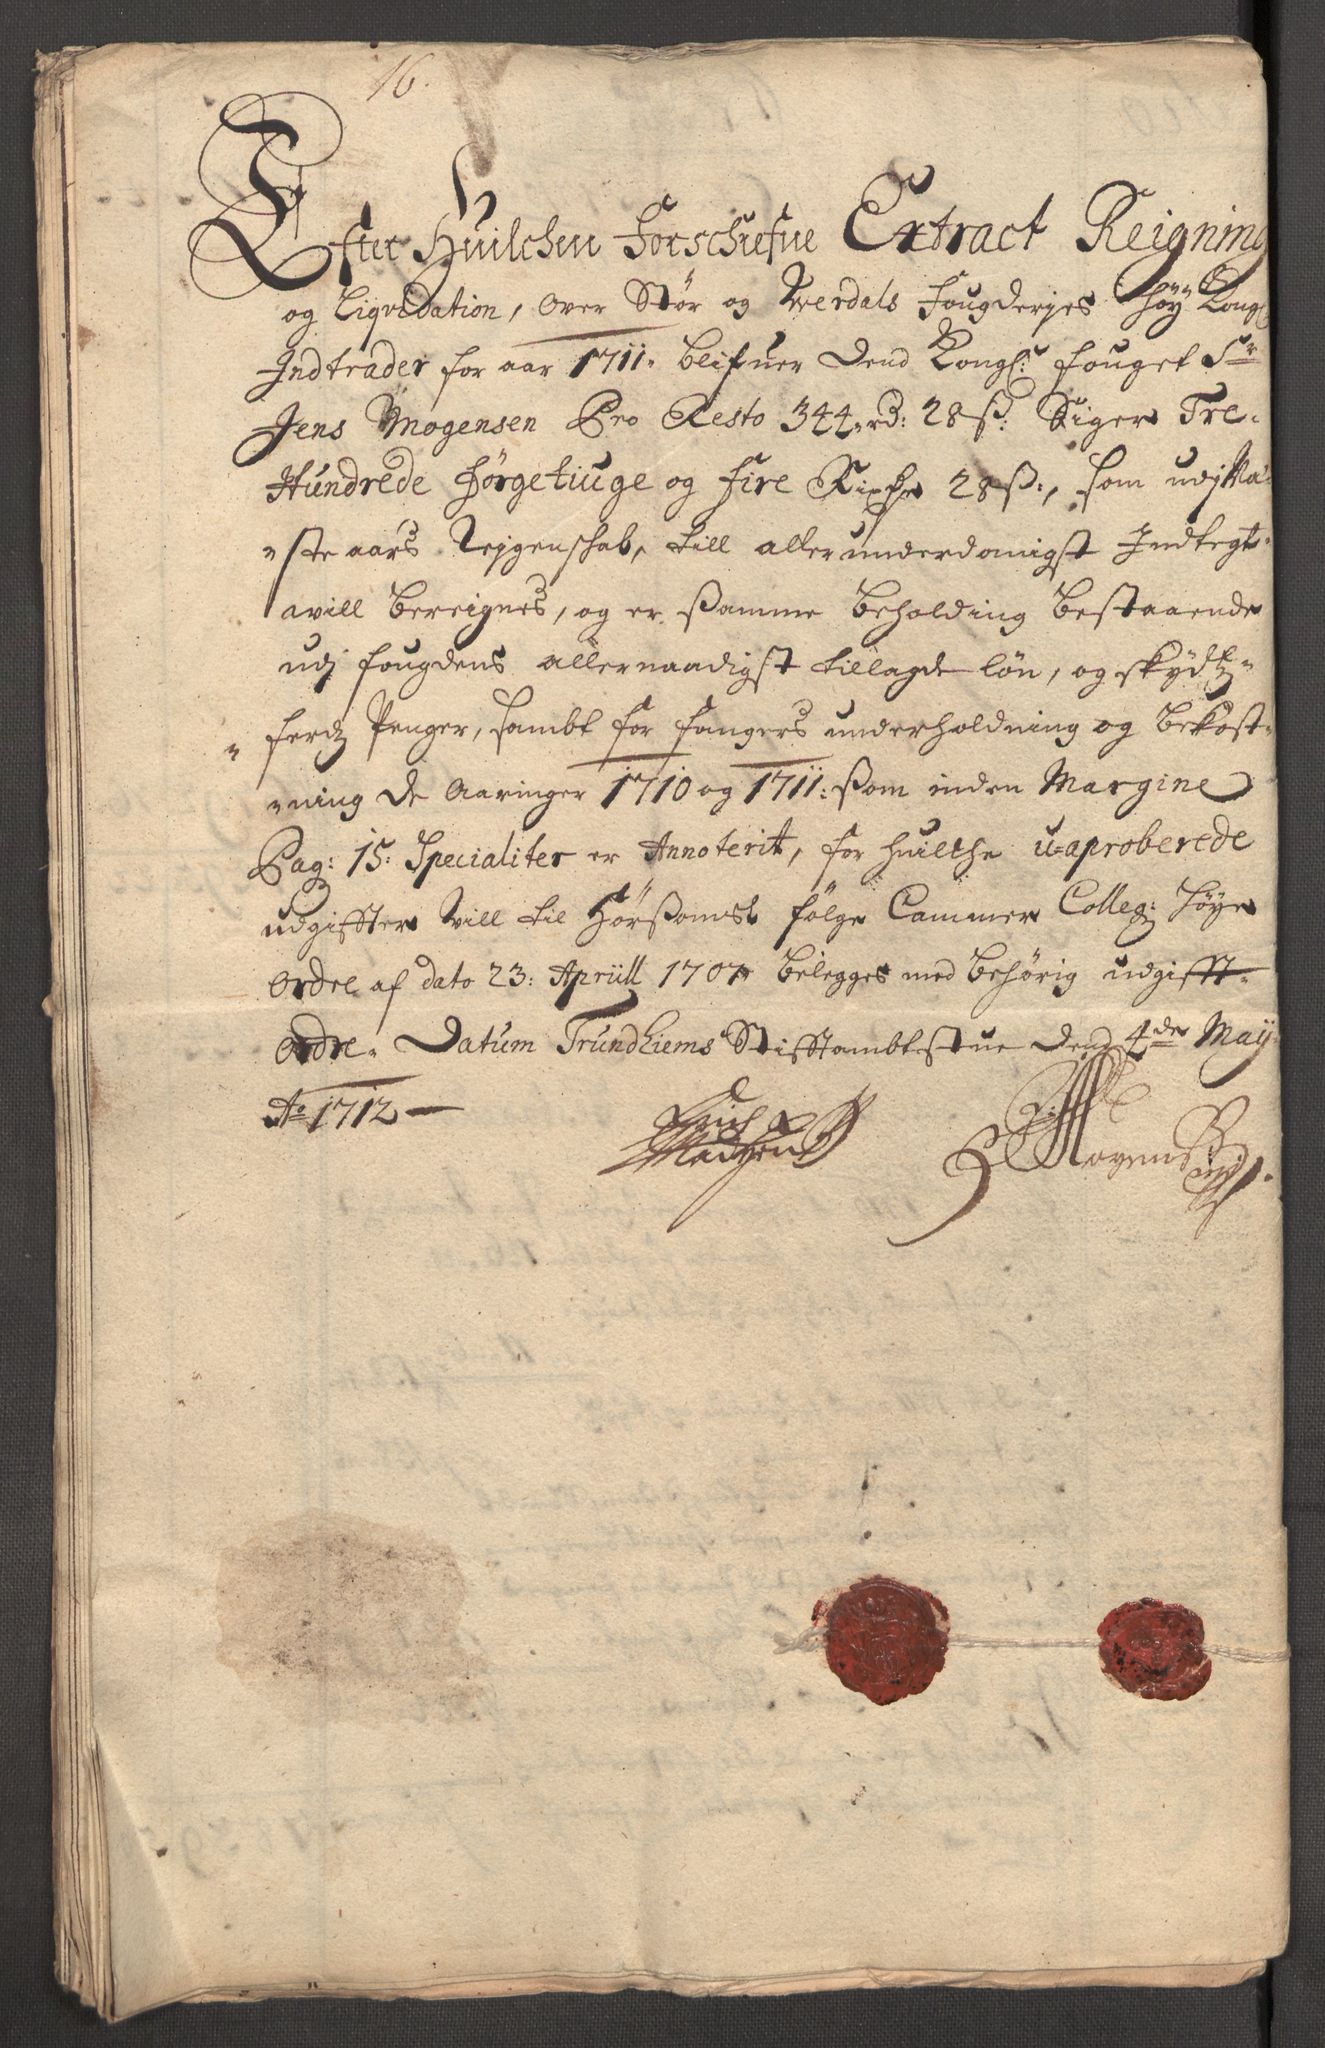 16.
Efter Huilchen Forschrefne Extract Reigning
og Liqvidation, over Stør og Werdals Fougderies Høy Kongl
Indtrader for aar 1711. blifuer Dend Kongl: fouget Sr
Jens Mogensen Pro Resto 344 rd: 28 ß: Siger Tre-
Hundrede Førgetiuge og fire Rixdr 28 ß:, som udj Næ-
ste aars Rejgenschab, till allerunderdanigst Indtegt-
avill bereignes, og er ßamme beholding bestaaende
udj fougdens allernaadigst tillagde løn, og skydtz-
ferdz Penger, sambt for fangers underholdning og bekost-
ning de Aaringer 1710 og 1711: ßom inden Margine
Pag: 15: Specialiter er Annoterit, for huilche u-aproberede
udgiffter vill til Hørßomst følge Cammer Colleg: Høye
ordre af dato 23: Aprill 1707 belegges med behørig udgifft-
ordre. Datum Trundhiems Stifftambtstue den 4de May
Ao 1712
Erich
Madtzen